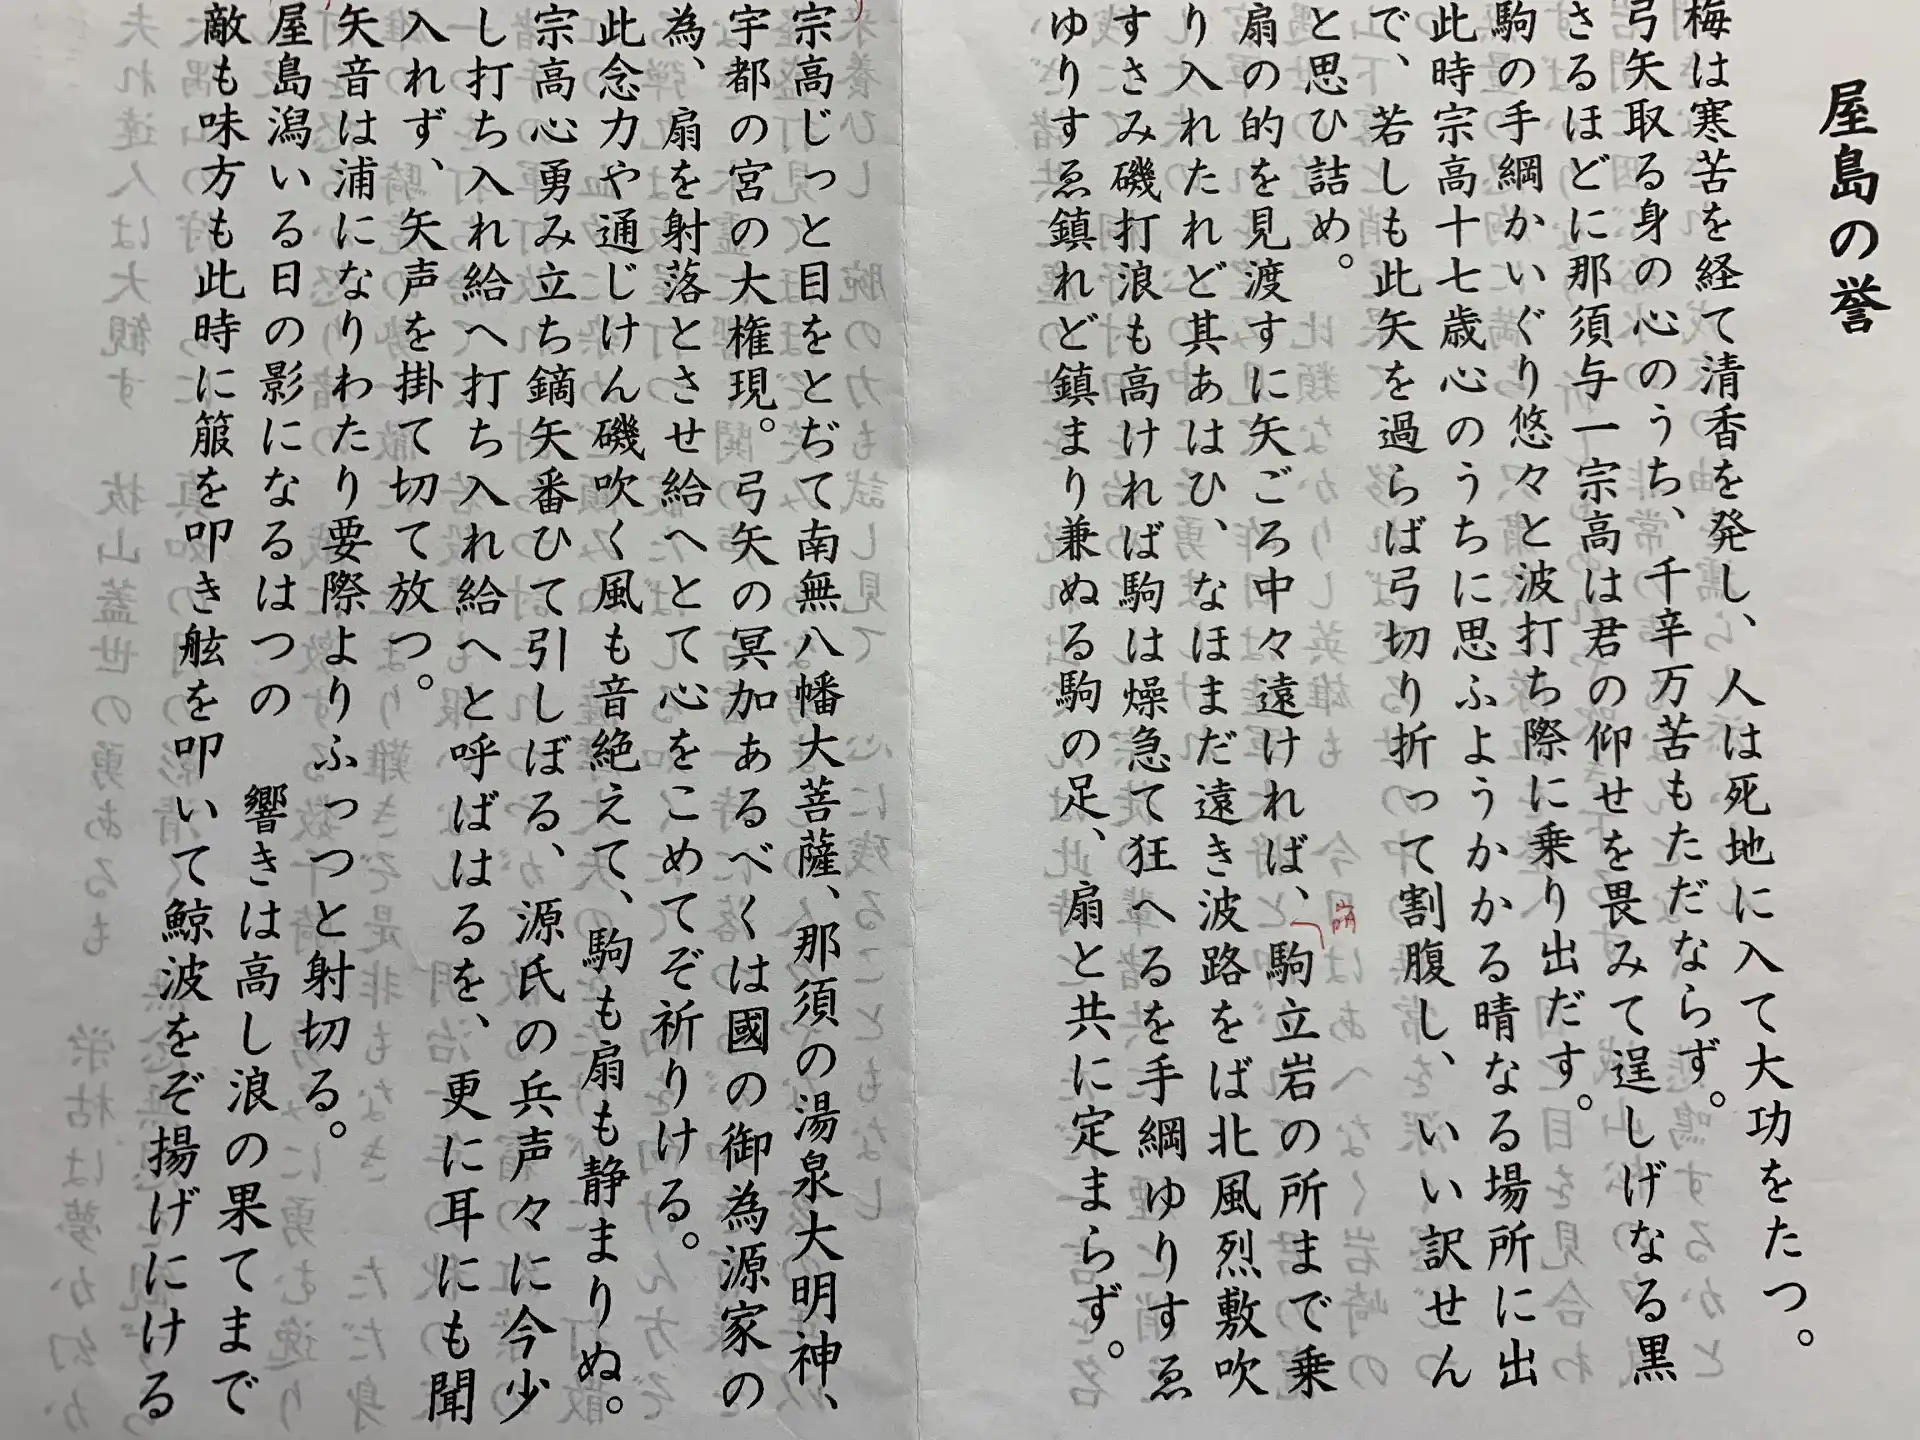 屋島の誉
梅は寒苦を経て清香を発し、人は死地に入て大功をたつ。
弓矢取る身の心のうち、千辛万苦もただならず。
さるほどに那須与一宗高は君の仰せを畏みて逞しげなる黒
駒の手綱かいぐり悠々と波打ち際に乗り出だす。
此時宗高十七歳心のうちに思ふようかかる晴なる場所に出
で、若しも此矢を過らば弓切り折って割腹し、いい訳せん
と思ひ詰め。
扇の的を見渡すに矢ごろ中々遠ければ、駒立岩の所まで乗
り入れたれど其あはひ、なほまだ遠き波路をば北風烈敷吹
すさみ磯打浪も高ければ駒は燥急て狂へるを手綱ゆりすゑ
ゆりすゑ鎮れど鎮まり兼ぬる駒の足、扇と共に定まらず。
宗高じっと目をとぢて南無八幡大菩薩、那須の湯泉大明神、
宇都の宮の大権現。弓矢の冥加あるべくは國の御為源家の
為、扇を射落とさせ給へとて心をこめてぞ祈りける。
此念力や通じけん磯吹く風も音絶えて、駒も扇も静まりぬ。
宗高心勇み立ち鏑矢番ひて引しぼる、源氏の兵声々に今少
し打ち入れ給へ打ち入れ給へと呼ばはるを、更に耳にも聞
入れず、矢声を掛て切て放つ。
矢音は浦になりわたり要際よりふっつと射切る。
屋島潟いる日の影になるはつの　響きは高し浪の果てまで
敵も味方も此時に箙を叩き舷を叩いて鯨波をぞ揚げにける